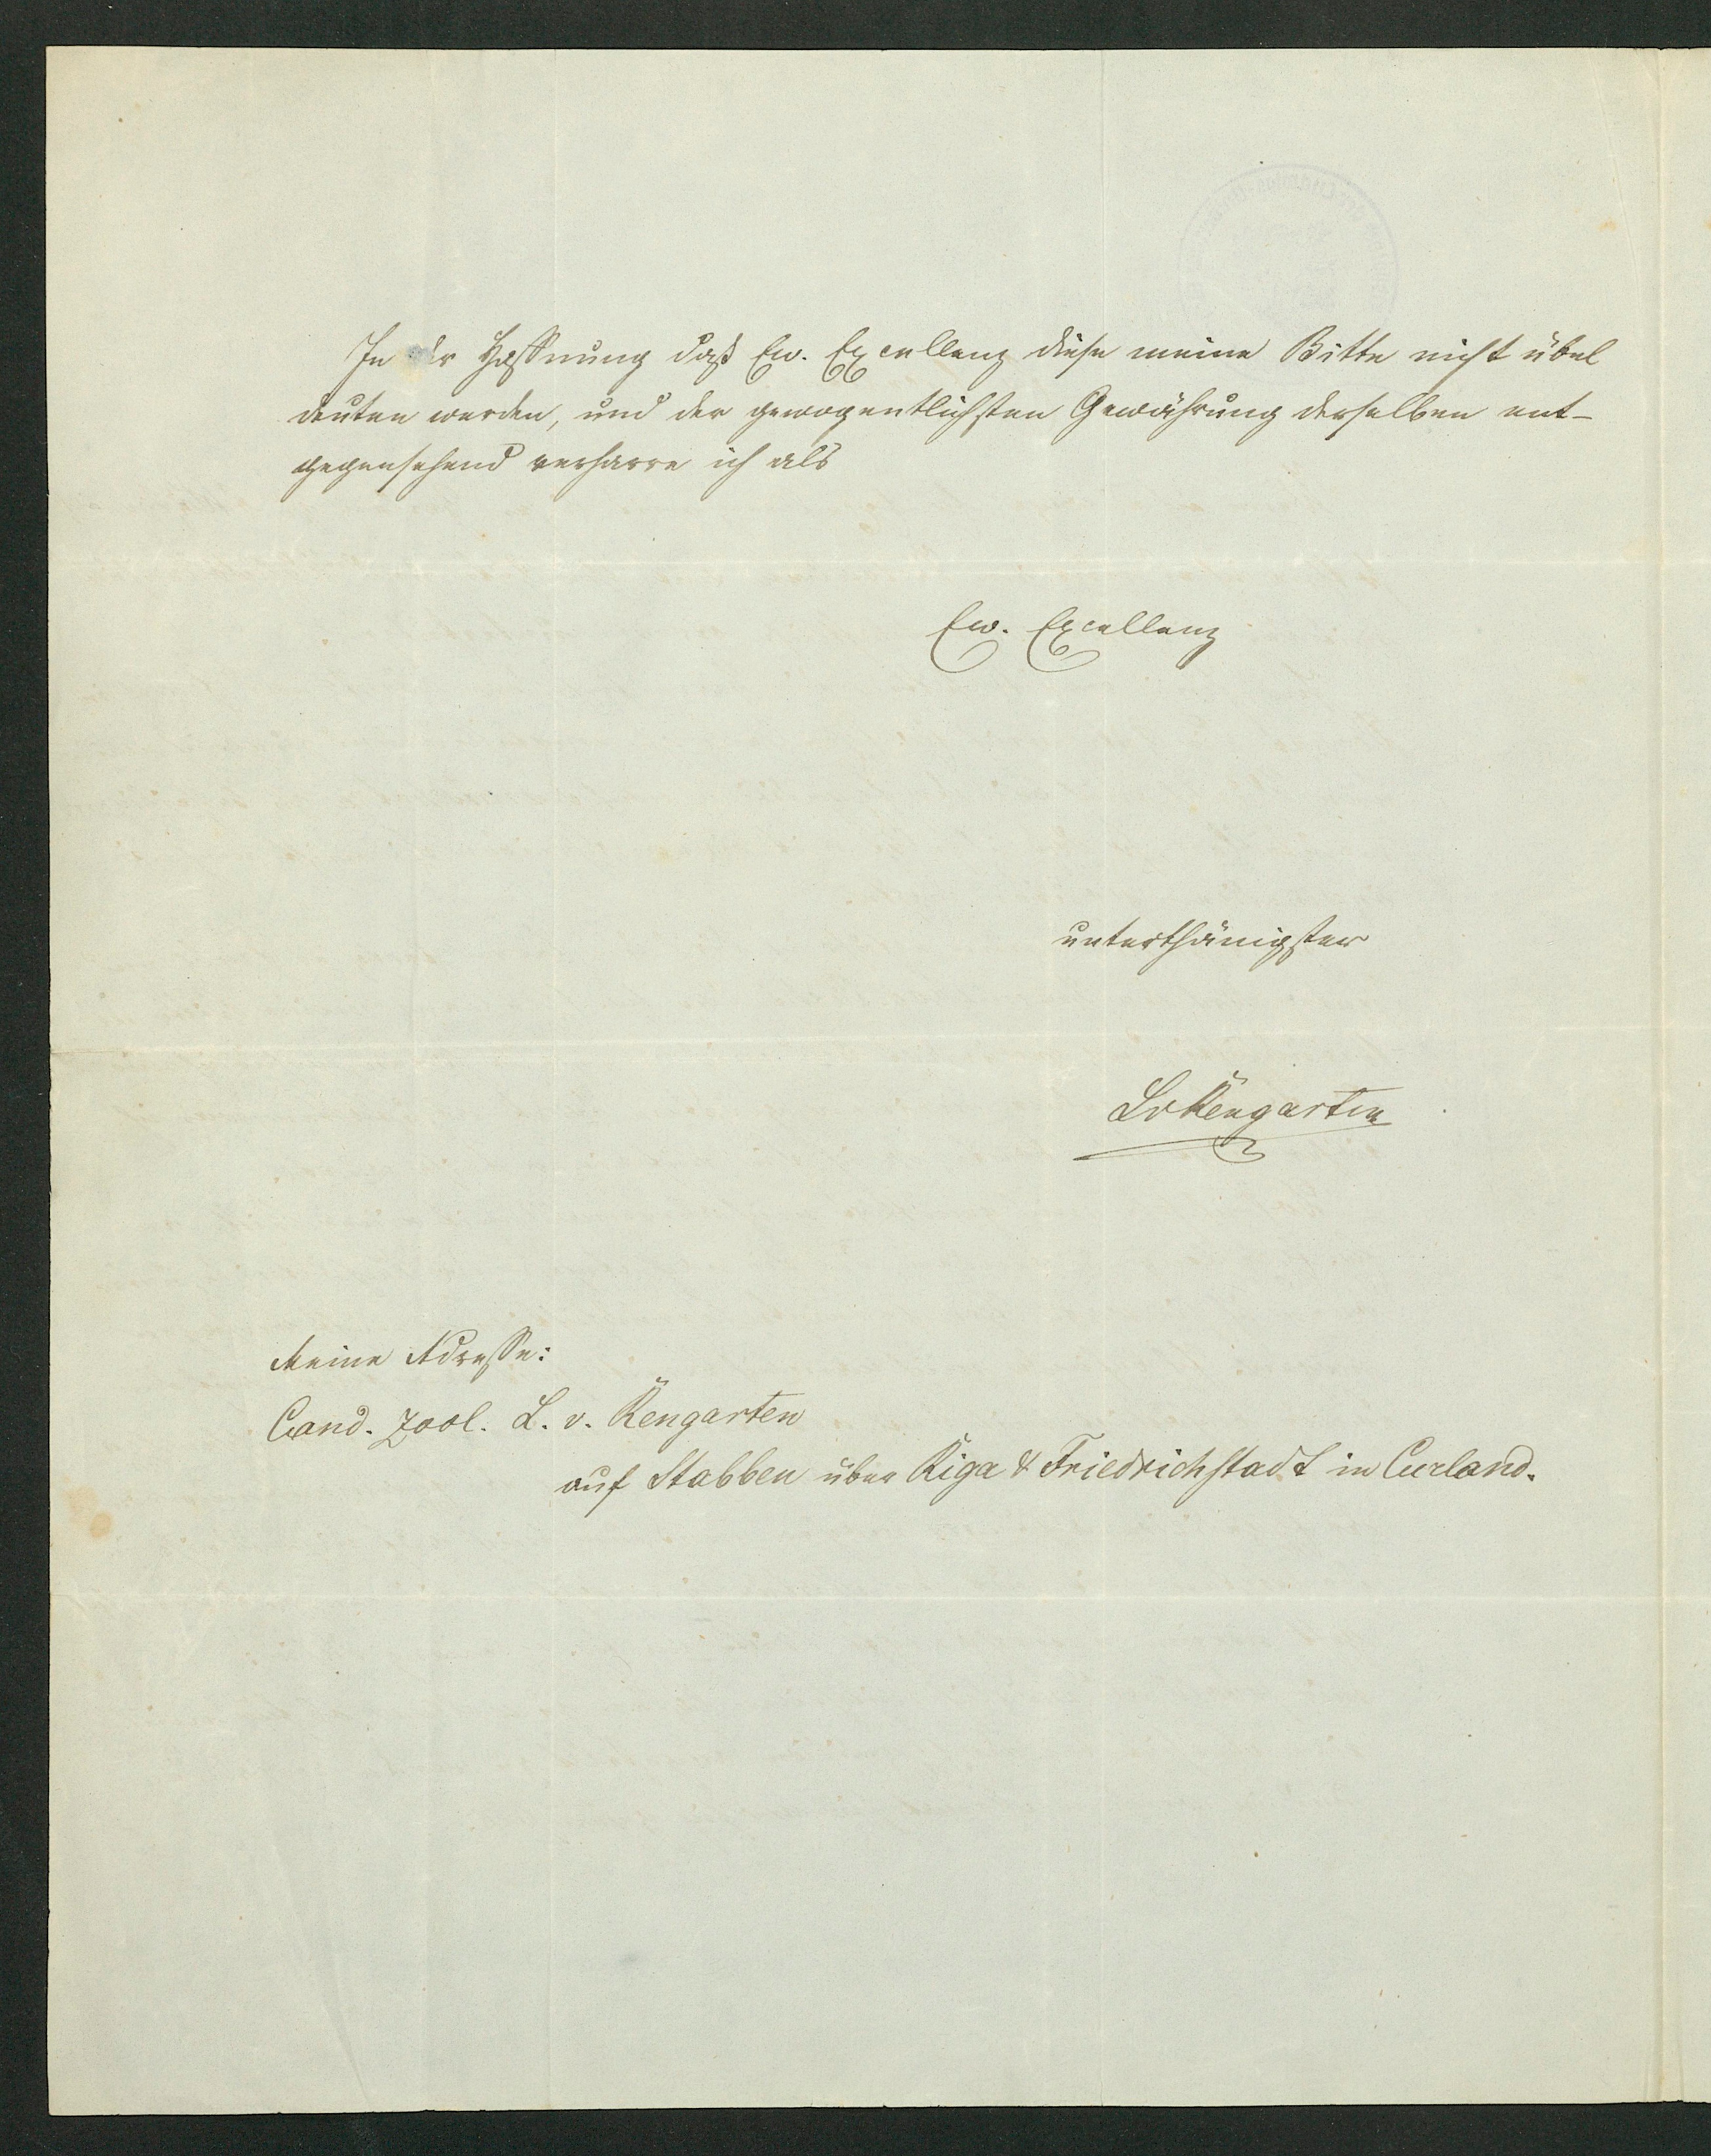 In der Hoffnung daß Ew. Excellenz diese meine Bitte nicht übel
deuten werden, und der gewogentlichsten Gewährung derselben ent-
gegensehend verharre ich als
Ew. Excellenz
unterthänigster
LvRengarten
Meine Adresse:
Cand. zool. L. v. Rengarten
auf Stabben über Riga & Friedrichstadt in Curland.